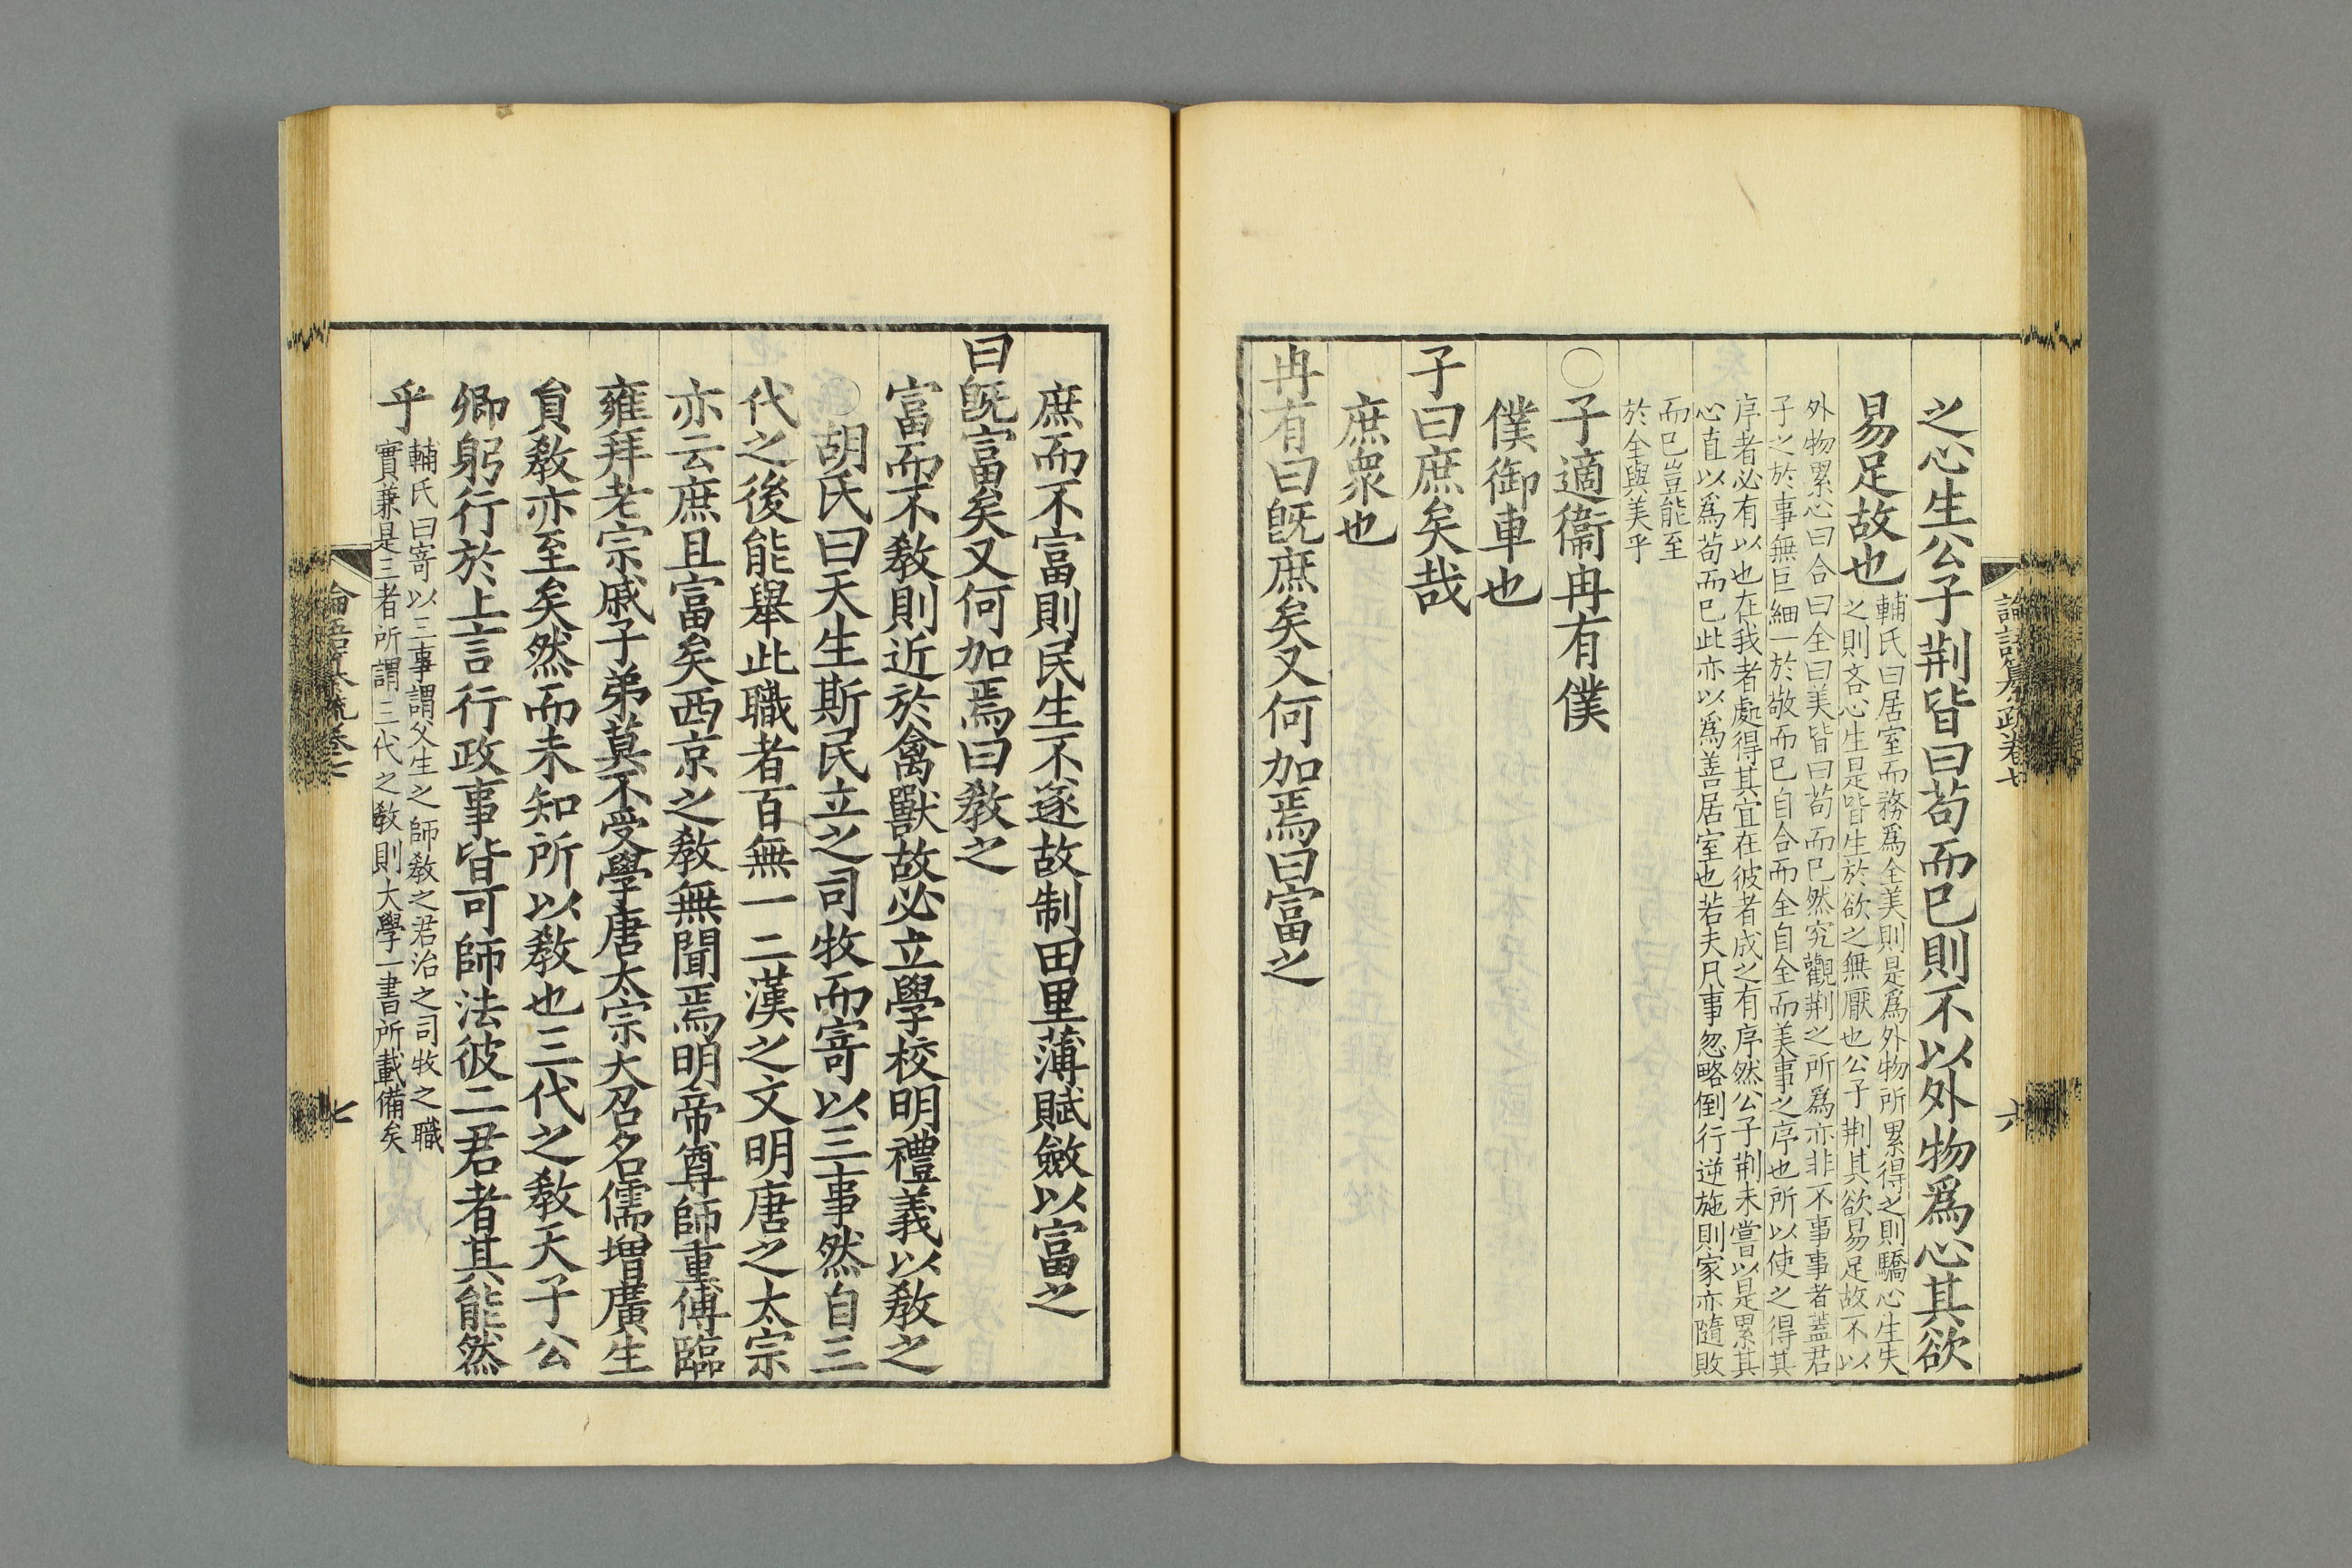 之心生公子荆皆曰苟而已則不以外物爲心其欲
易足故也
輔氏曰居室而務爲全美則是爲外物所累得之則驕心生失
之則吝心生是皆生於欲之無厭也公子荆其欲易足故不以
外物累心曰合曰全曰美皆曰苟而已然究觀荆之所爲亦非不事事者蓋君
子之於事無巨細一於敬而已自合而全自全而美事之序也所以使之得其
序者必有以也在我者處得其宜在彼者成之有序然公子荆未嘗以是累其
心直以爲苟而已此亦以爲善居室也若夫凡事忽略倒行逆施則家亦隨敗
而已豈能至
於全與美乎
○子適衞冉有僕
僕御車也
子曰庶矣哉
庶衆也
冉有曰旣庶矣又何加焉曰富之
論語纂疏卷七
六
庶而不富則民生不遂故制田里薄賦斂以富之
曰旣富矣又何加焉曰敎之
富而不敎則近於禽獸故必立學校明禮義以敎之
○胡氏曰天生斯民立之司牧而寄以三事然自三
代之後能舉此職者百無一二漢之文明唐之太宗
亦云庶且富矣西京之敎無聞焉明帝尊師重傅臨
雍拜老宗戚子弟莫不受學唐太宗大召名儒增廣生
員敎亦至矣然而未知所以敎也三代之敎天子公
卿躬行於上言行政事皆可師法彼二君者其能然
乎
輔氏曰寄以三事謂父生之師敎之君治之司牧之職
實兼是三者所謂三代之敎則大學一書所載備矣
論語纂疏卷七
七